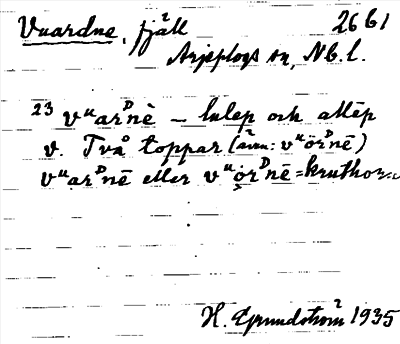 Vuardne, fjäll 2661
Arjeplogs sn, Nb. l.
23 vᵘarᴰnē – lulep och allēp
v. Två toppar (även: vᵘörᴰnē)
vᵘarᴰnē eller vᵘo̤rᴰnē = kruthorn
H. Grundström 1935